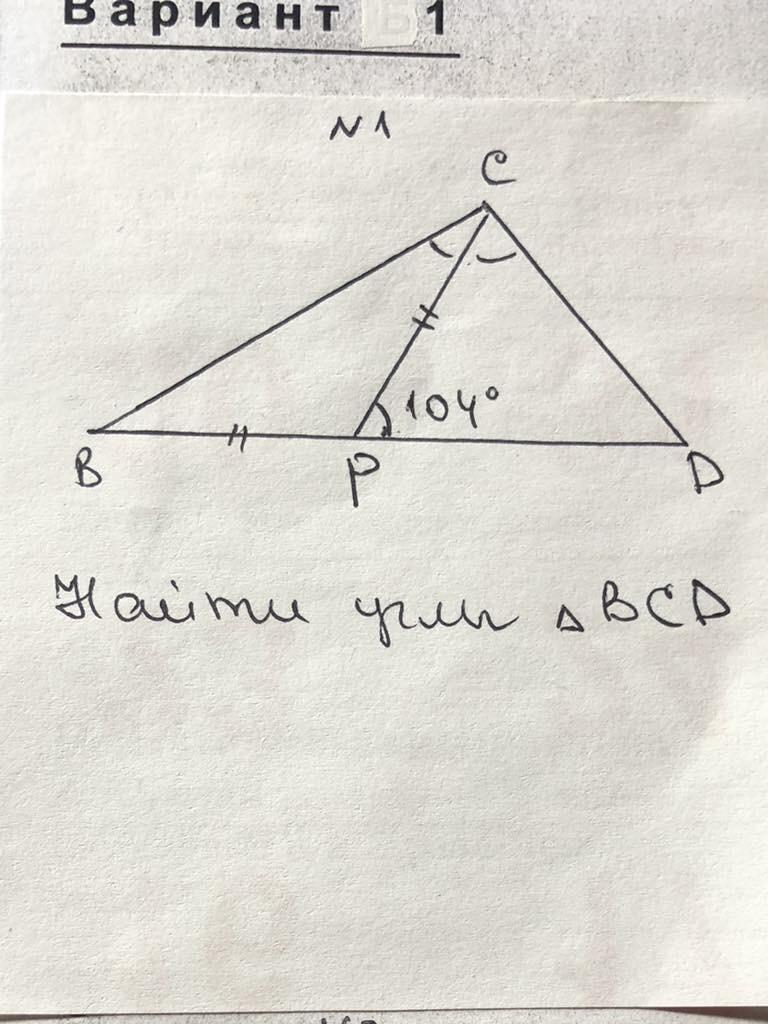 Вариант Б1
N1
C
104°
B P D
Найти углы △BCD